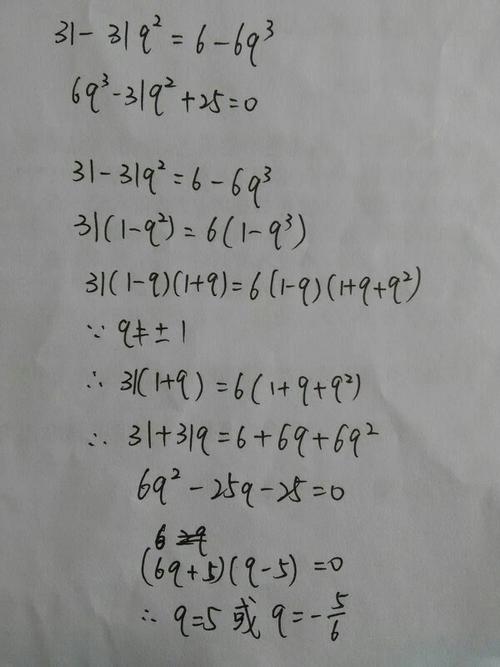 31-31q²=6-6q³
6q³-31q²+25=0
31-31q²=6-6q³
31(1-q²)=6(1-q³)
31(1-q)(1+q)=6(1-q)(1+q+q²)
∵ q≠±1
∴ 31(1+q)=6(1+q+q²)
∴ 31+31q=6+6q+6q²
6q²-25q-25=0
6
(6q+5)(q-5)=0
∴ q=5 或 q=-5/6